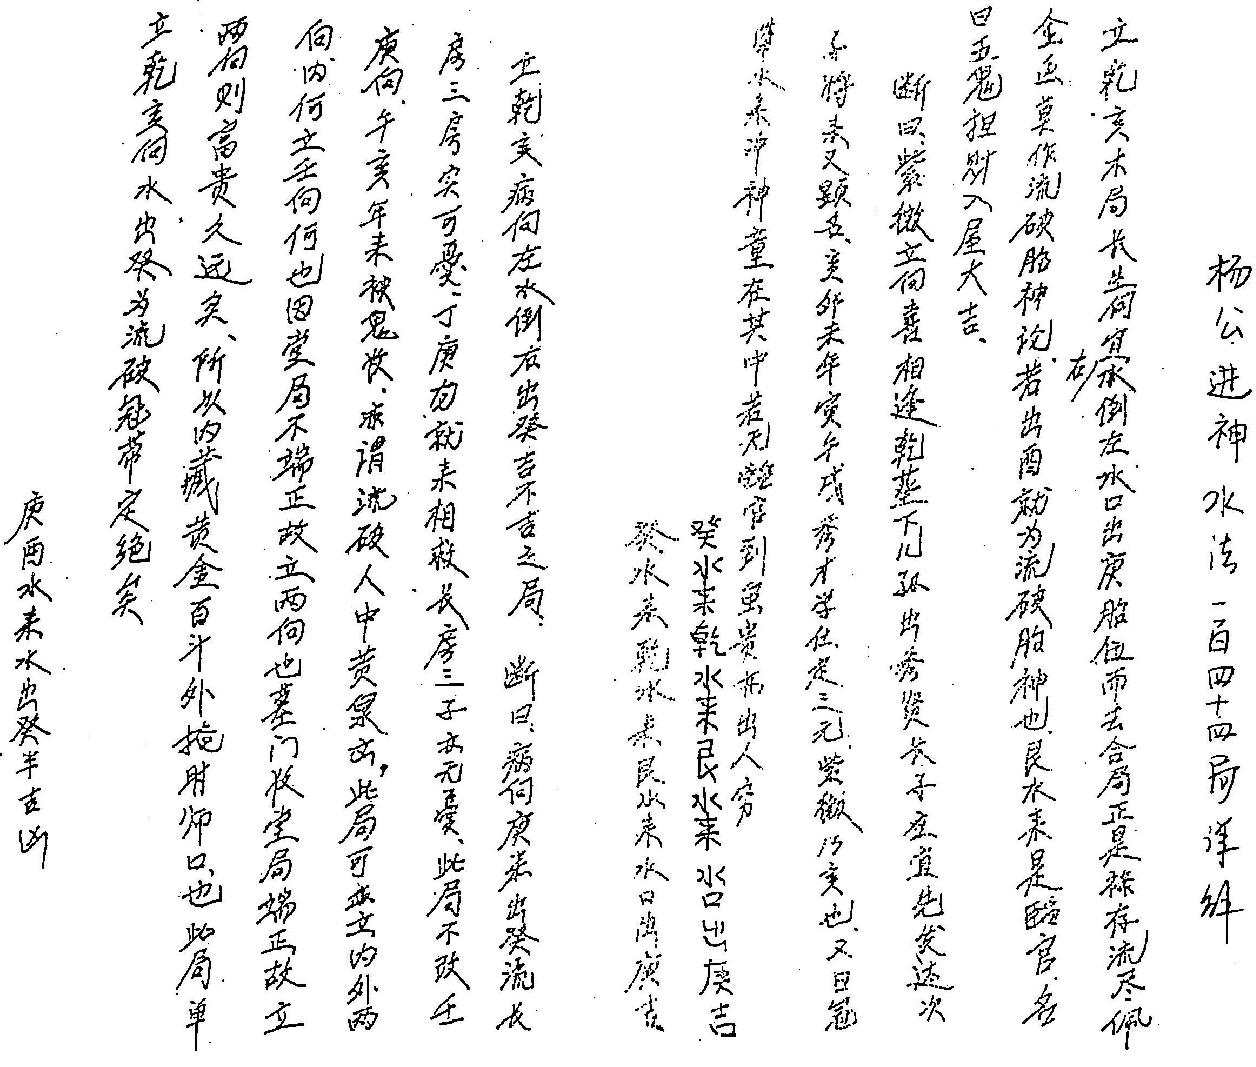 杨公进神水法一百四十四局详解
立乾亥木局长生向宜右水倒左水口出庚胎位而去合局正是禄存流尽佩
金鱼莫作流破胎神论。若出酉就为流破胎神也、艮水来是临官、名
曰五鬼担财入屋大吉、
断曰、紫微立向喜相逢乾葬下儿孙出秀贤长子应宜先发达次
子将来又显名、亥卯未年寅午戌秀才学仕定三元、紫微乃亥也、又曰冠
带水来冲神童在其中若无临官到虽贵亦出人穷
癸水来乾水来艮水来水口出庚吉
癸水来乾水来艮水来水口出庚吉
立乾亥病向左水倒右出癸吉不吉之局、断曰、病向庚来出癸流长
房三房实可忧、丁庚向就来相救长房三子亦无忧、此局不改壬
庚向、午亥年来被鬼收、亦谓流破人中黄泉出，此局可立内外两
向、内何立壬向何也因堂局不端正故立两向也墓门收堂局端正故立
两向则富贵久远矣、所以内藏黄金百斗外掩时师口也此局单
立乾亥向水出癸为流破冠带定绝矣
庚酉水来水出癸半吉凶